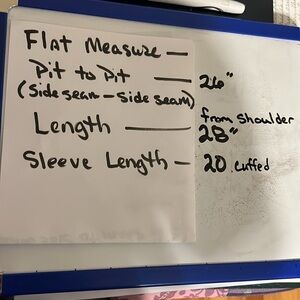 Flat Measure —
Pit to Pit — 26"
(Side seam - Side seam)
from Shoulder
Length — 28"
Sleeve Length — 20 Cuffed